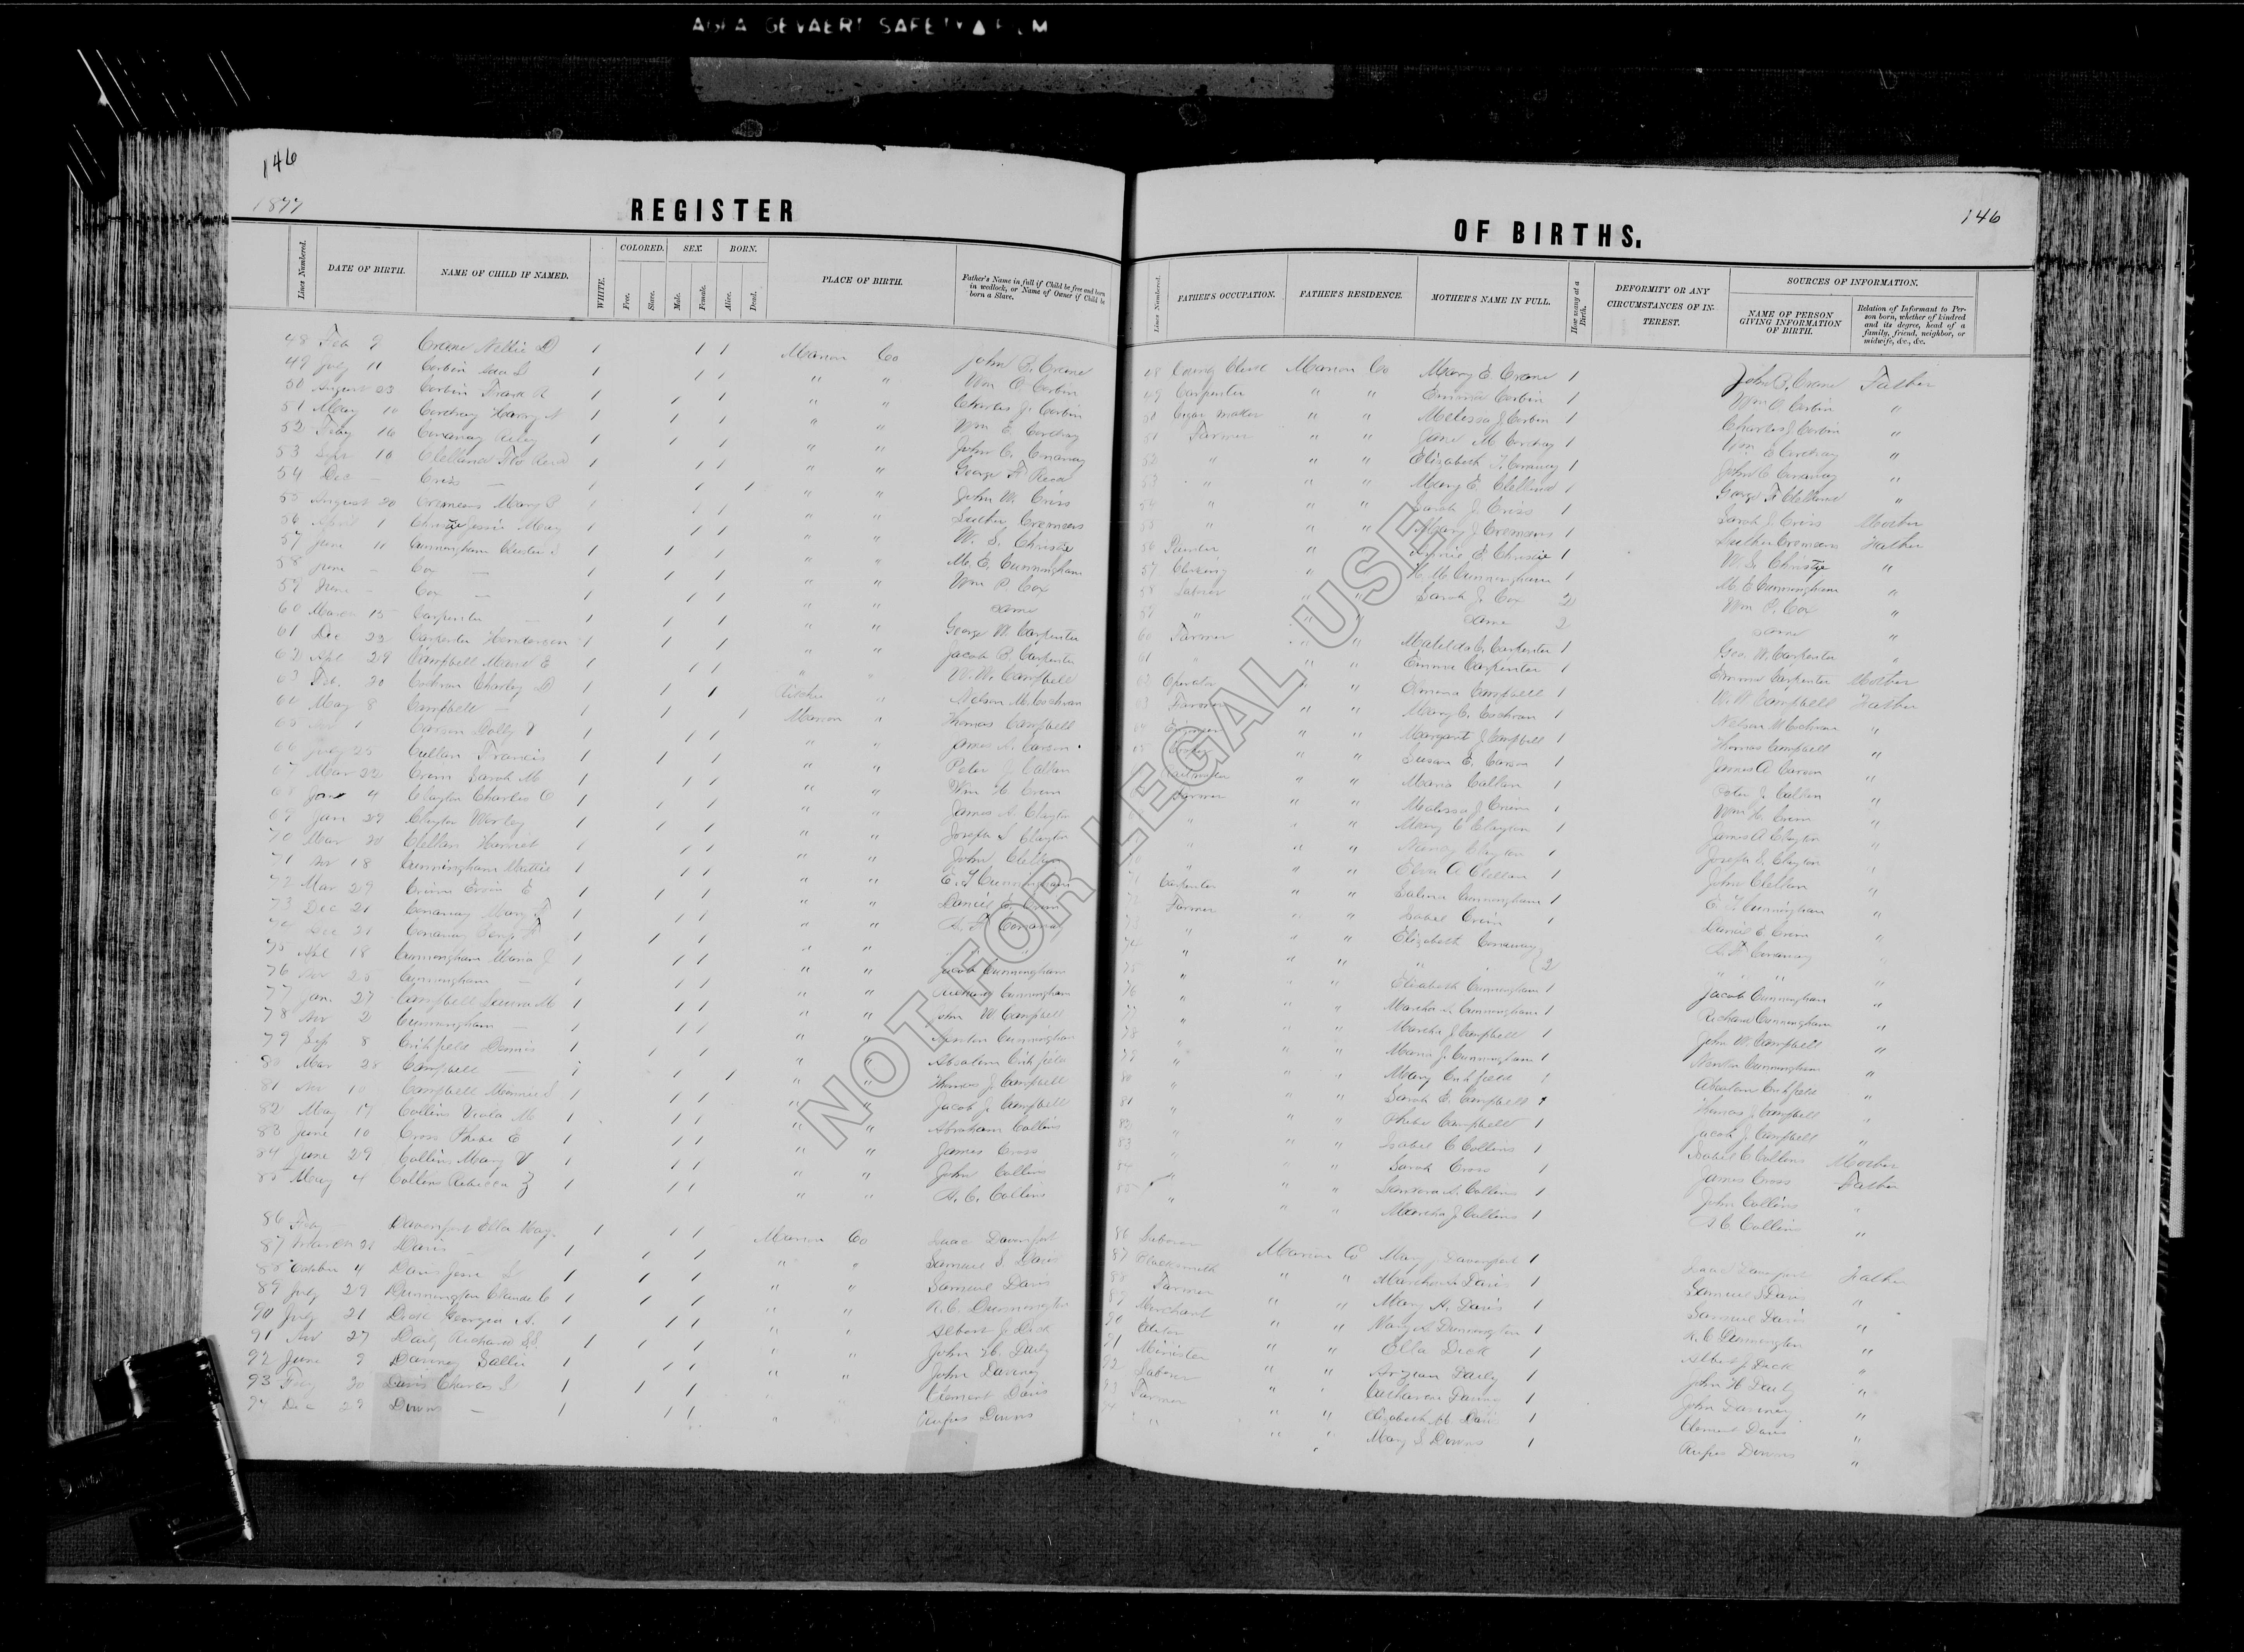 AGFA GEVAERT SAFETY FILM
146
1877
REGISTER
Lines Numbered. DATE OF BIRTH. NAME OF CHILD IF NAMED. WHITE. COLORED. Free. Slave. SEX. Male. Female. BORN. Alive. Dead. PLACE OF BIRTH. Father's Name in full if Child be free and born in wedlock, or Name of Owner if Child be born a Slave.
48 Feb 9 Crane Nellie D 1 1 1 Marion Co John B. Crane
49 July 11 Corbin 1 1 1 " " Wm O Corbin
50 August 23 Corbin Frank A 1 1 1 " " Charles J. Corbin
51 May 10 Cordray Harry N 1 1 1 " " Wm E Cordray
52 Feby 16 Conaway Riley 1 1 1 " " John C. Conaway
53 Sept 10 Clelland 1 1 1 " " George F
54 Dec - Criss - 1 1 1 " " John W. Criss
55 August 20 Cremeans Mary 1 1 1 " " Luther Cremeans
56 April 1 Christie Jessie May 1 1 1 " " W. S. Christie
57 June 11 Cunningham 1 1 1 " " M. E. Cunningham
58 June - Cox - 1 1 1 " " Wm P. Cox
59 June - Cox - 1 1 1 " " same
60 March 15 Carpenter - 1 1 1 " " George W. Carpenter
61 Dec 22 Carpenter Henderson 1 1 1 " " Jacob B. Carpenter
62 Apl 29 Campbell Maud E 1 1 1 " " W. W. Campbell
63 Feb. 20 Cochran Charley D 1 1 1 Ritchie " Nelson M. Cochran
64 May 8 Campbell - 1 1 1 Marion " Thomas Campbell
65 Nov 1 Carson Dolly V 1 1 1 " " James A. Carson
66 July 25 Cullan Francis 1 1 1 " " Peter J. Cullan
67 Mar 22 Crem Sarah M 1 1 1 " " Wm H. Crem
68 Jan 4 Clayton Charles O 1 1 1 " " James A. Clayton
69 Jan 29 Clayton Worley 1 1 1 " " Joseph S. Clayton
70 Mar 20 Clellan Harriet 1 1 1 " " John Clellan
71 Nov 18 Cunningham Mattie 1 1 1 " " E. T Cunningham
72 Mar 29 Crim Ervin E 1 1 1 " " Daniel C. Crim
73 Dec 21 Conaway Mary F 1 1 1 " " A. F. Conaway
74 Dec 21 Conaway 1 1 1 " " " "
75 Apl 18 Cunningham Maria J 1 1 1 " " Jacob Cunningham
76 Nov 25 Cunningham - 1 1 1 " " Richard Cunningham
77 Jan. 27 Campbell M 1 1 1 " " John W Campbell
78 Nov 2 Cunningham - 1 1 1 " " Newton Cunningham
79 Sep 8 Crihfield Dennis 1 1 1 " " Absalom Crihfield
80 Mar 28 Campbell - 1 1 1 " " Thomas J Campbell
81 Nov 10 Campbell Minnie S 1 1 1 " " Jacob J. Campbell
82 May 17 Collins Viola M 1 1 1 " " Abraham Collins
83 June 10 Cross Phebe E 1 1 1 " " James Cross
84 June 29 Collins Mary V 1 1 1 " " John Collins
85 May 4 Collins Rebecca Z 1 1 1 " " A. C. Collins
86 Feby - Davenport Ella May 1 1 1 Marion Co Isaac Davenport
87 March 21 Davis - 1 1 1 " " Samuel S. Davis
88 October 4 Davis Jesse L 1 1 1 " " Samuel Davis
89 July 29 Dunnington Claude C 1 1 1 " " R. C. Dunnington
90 July 21 Dick Georgia A. 1 1 1 " " Albert J. Dick
91 Nov 27 Daily Richard 1 1 1 " " John H. Daily
92 June 9 Daviney Sallie 1 1 1 " " John Daviney
93 Feby 20 Davis Charles L 1 1 1 " " Clement Davis
94 Dec 29 Downs - 1 1 1 " " Rufus Downs
146
OF BIRTHS.
Lines Numbered. FATHER'S OCCUPATION. FATHER'S RESIDENCE. MOTHER'S NAME IN FULL. How many at a Birth. DEFORMITY OR ANY CIRCUMSTANCES OF INTEREST. SOURCES OF INFORMATION. NAME OF PERSON GIVING INFORMATION OF BIRTH. Relation of Informant to Person born, whether of kindred and its degree, head of a family, friend, neighbor, or midwife, &c., &c.
48 County Clerk Marion Co Mary E. Crane 1 John B. Crane Father
49 Carpenter " " Emma Corbin 1 Wm O Corbin "
50 Cigar maker " " Melissa J Corbin 1 Charles J Corbin "
51 Farmer " " Jane M Cordray 1 Wm E Cordray "
52 " " " Elizabeth F. Conaway 1 John C Conaway "
53 " " " Mary E. Clelland 1 George F Clelland "
54 " " " Sarah J. Criss 1 Sarah J. Criss Mother
55 " " " Mary J Cremeans 1 Luther Cremeans Father
56 Painter " " Annie E. Christie 1 W. S. Christie "
57 " " M. Cunningham 1 M. E Cunningham "
58 Laborer " " Sarah J. Cox 2 Wm P. Cox "
59 " " " same 2 same "
60 Farmer " " Matilda C. Carpenter 1 Geo. W. Carpenter "
61 " " " Emma Carpenter 1 Emma Carpenter Mother
62 Operator " " Campbell 1 W. W Campbell Father
63 Farmer " " Mary C. Cochran 1 Nelson M Cochran "
64 " " Margaret J Campbell 1 Thomas Campbell "
65 " " Susan E. Carson 1 James A Carson "
66 " " Maria Cullan 1 Peter J. Cullan "
67 Farmer " " Malissa J Crem 1 Wm H. Crem "
" " " Mary C Clayton 1 James A Clayton "
" " " Nancy Clayton 1 Joseph S. Clayton "
70 " " " A Clellan 1 John Clellan "
71 Carpenter " " Salina Cunningham 1 E. T Cunningham "
72 Farmer " " Isabel Crim 1 Daniel C. Crim "
73 " " " Elizabeth Conaway A. F. Conaway "
74 " " " " " 2 " " "
75 " " " Elizabeth Cunningham 1 Jacob Cunningham "
76 " " " Martha Cunningham 1 Richard Cunningham "
77 " " " Martha J Campbell 1 John W Campbell "
78 " " " Maria J. Cunningham 1 Newton Cunningham "
79 " " " Mary Crihfield 1 Absalom Crihfield "
80 " " " Sarah E. Campbell 1 Thomas J Campbell "
81 " " " Phebe Campbell 1 Jacob J. Campbell "
82 " " " Isabel C Collins 1 Isabel C Collins Mother
83 " " " Sarah Cross 1 James Cross Father
84 " " " A. Collins 1 John Collins "
85 " " " Martha J Collins 1 A C Collins "
86 Laborer Marion Co Mary J. Davenport 1 Isaac Davenport Father
87 Blacksmith " " Davis 1 Samuel S Davis "
88 Farmer " " Mary A. Davis 1 Samuel Davis "
89 Merchant " " Mary A Dunnington 1 R. C Dunnington "
90 Editor " " Ella Dick 1 Albert J Dick "
91 Minister " " Daily 1 John H Daily "
92 Laborer " " Catharine 1 John Daviney "
93 Farmer " " Elizabeth M. Davis 1 Clement Davis "
94 " " " Mary S. Downs 1 Rufus Downs "
NOT FOR LEGAL USE